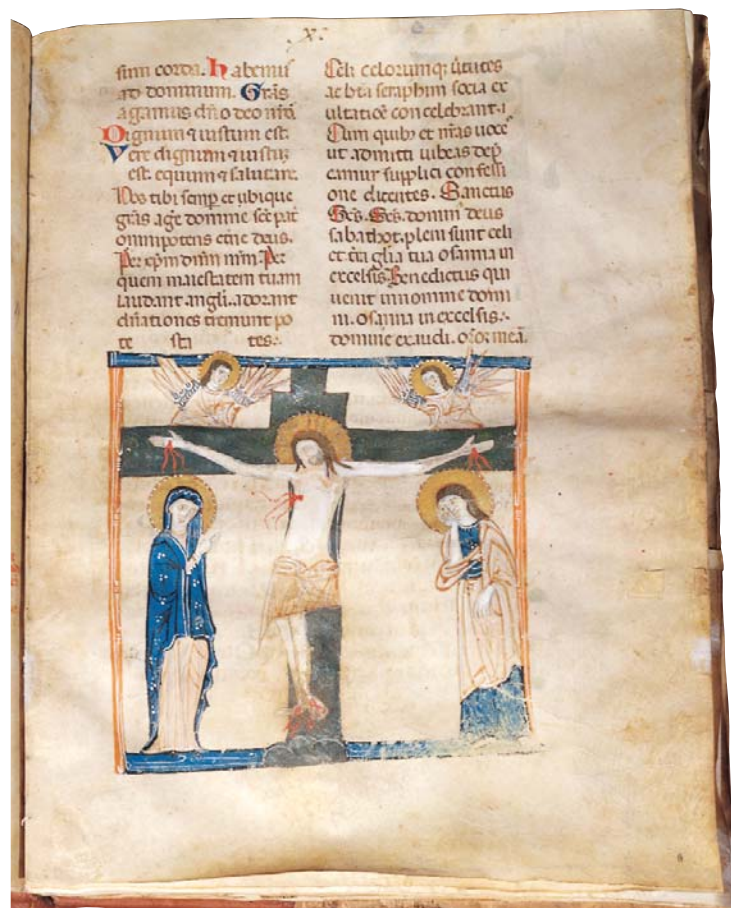 X
sum corda. Habemus
ad dominum. Gr̃as
agamus dño deo nr̃o
Dignum ⁊ iustum est.
Vere dignum ⁊ iustuʒ
est. equum ⁊ salutare.
Nos tibi semp̱ et ubique
gr̃as agẽ domine sc̃e pat̃
omnipotens et̃ne deus.
Per xp̃m dñm nr̃m. Per
quem maiestatem tuam
laudant angli. adorant
dñationes tremunt po
te sta tes.
Celi celorumqꝫ ũtutes
ac bt̃a seraphim socia ex
ultatiõe concelebrant.
Cum quibꝫ et nr̃as uoce
ut admitti iubeas dep̃
camur supplici confessi
one dicentes. Sanctus
Sc̃s. Sc̃s. domin deus
sabathot. pleni sunt celi
et t̃ra gl̃ia tua osanna in
excelsis. Benedictus qui
uenit in nomine domi
ni. Osanna in excelsis.
domine exaudi. or̃oʒ meã.